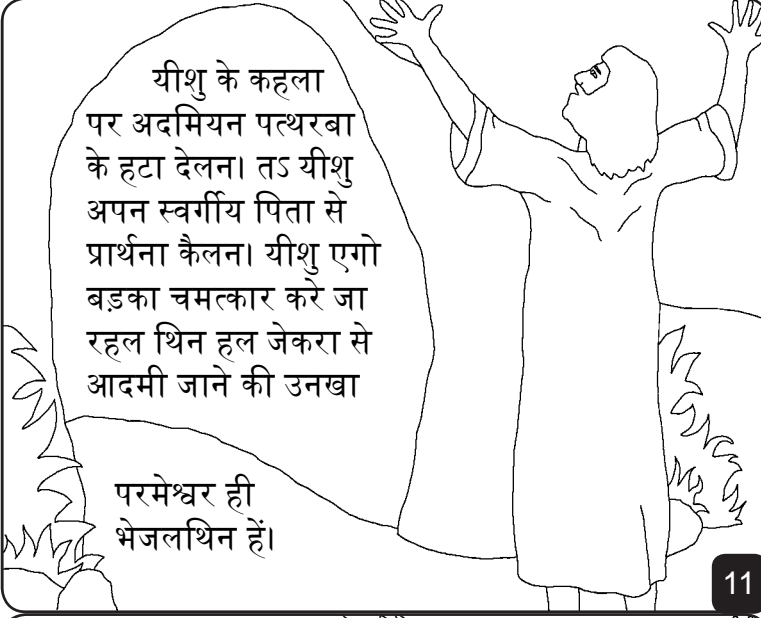 यीशु के कहला
पर अदमियन पत्थरबा
के हटा देलन। तऽ यीशु
अपन स्वर्गीय पिता से
प्रार्थना कैलन। यीशु एगो
बड़का चमत्कार करे जा
रहल थिन हल जेकरा से
आदमी जाने की उनखा
परमेश्वर ही
भेजलथिन हें।
11